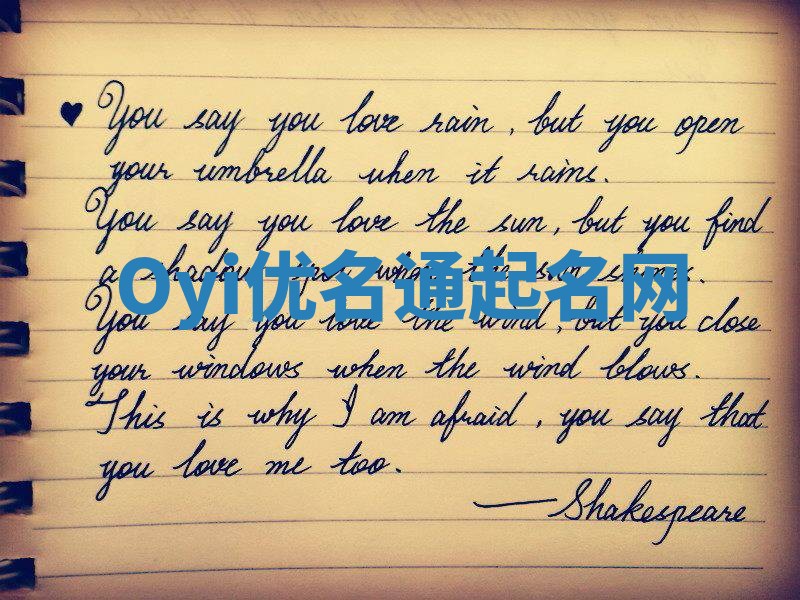 ♥ You say you love rain, but you open
your umbrella when it rains.
You say you love the sun, but you find
a shadow spot when the sun shines.
Oyi优名通起名网
You say you love the wind, but you close
your windows when the wind blows.
This is why I am afraid, you say that
you love me too.
— Shakespeare